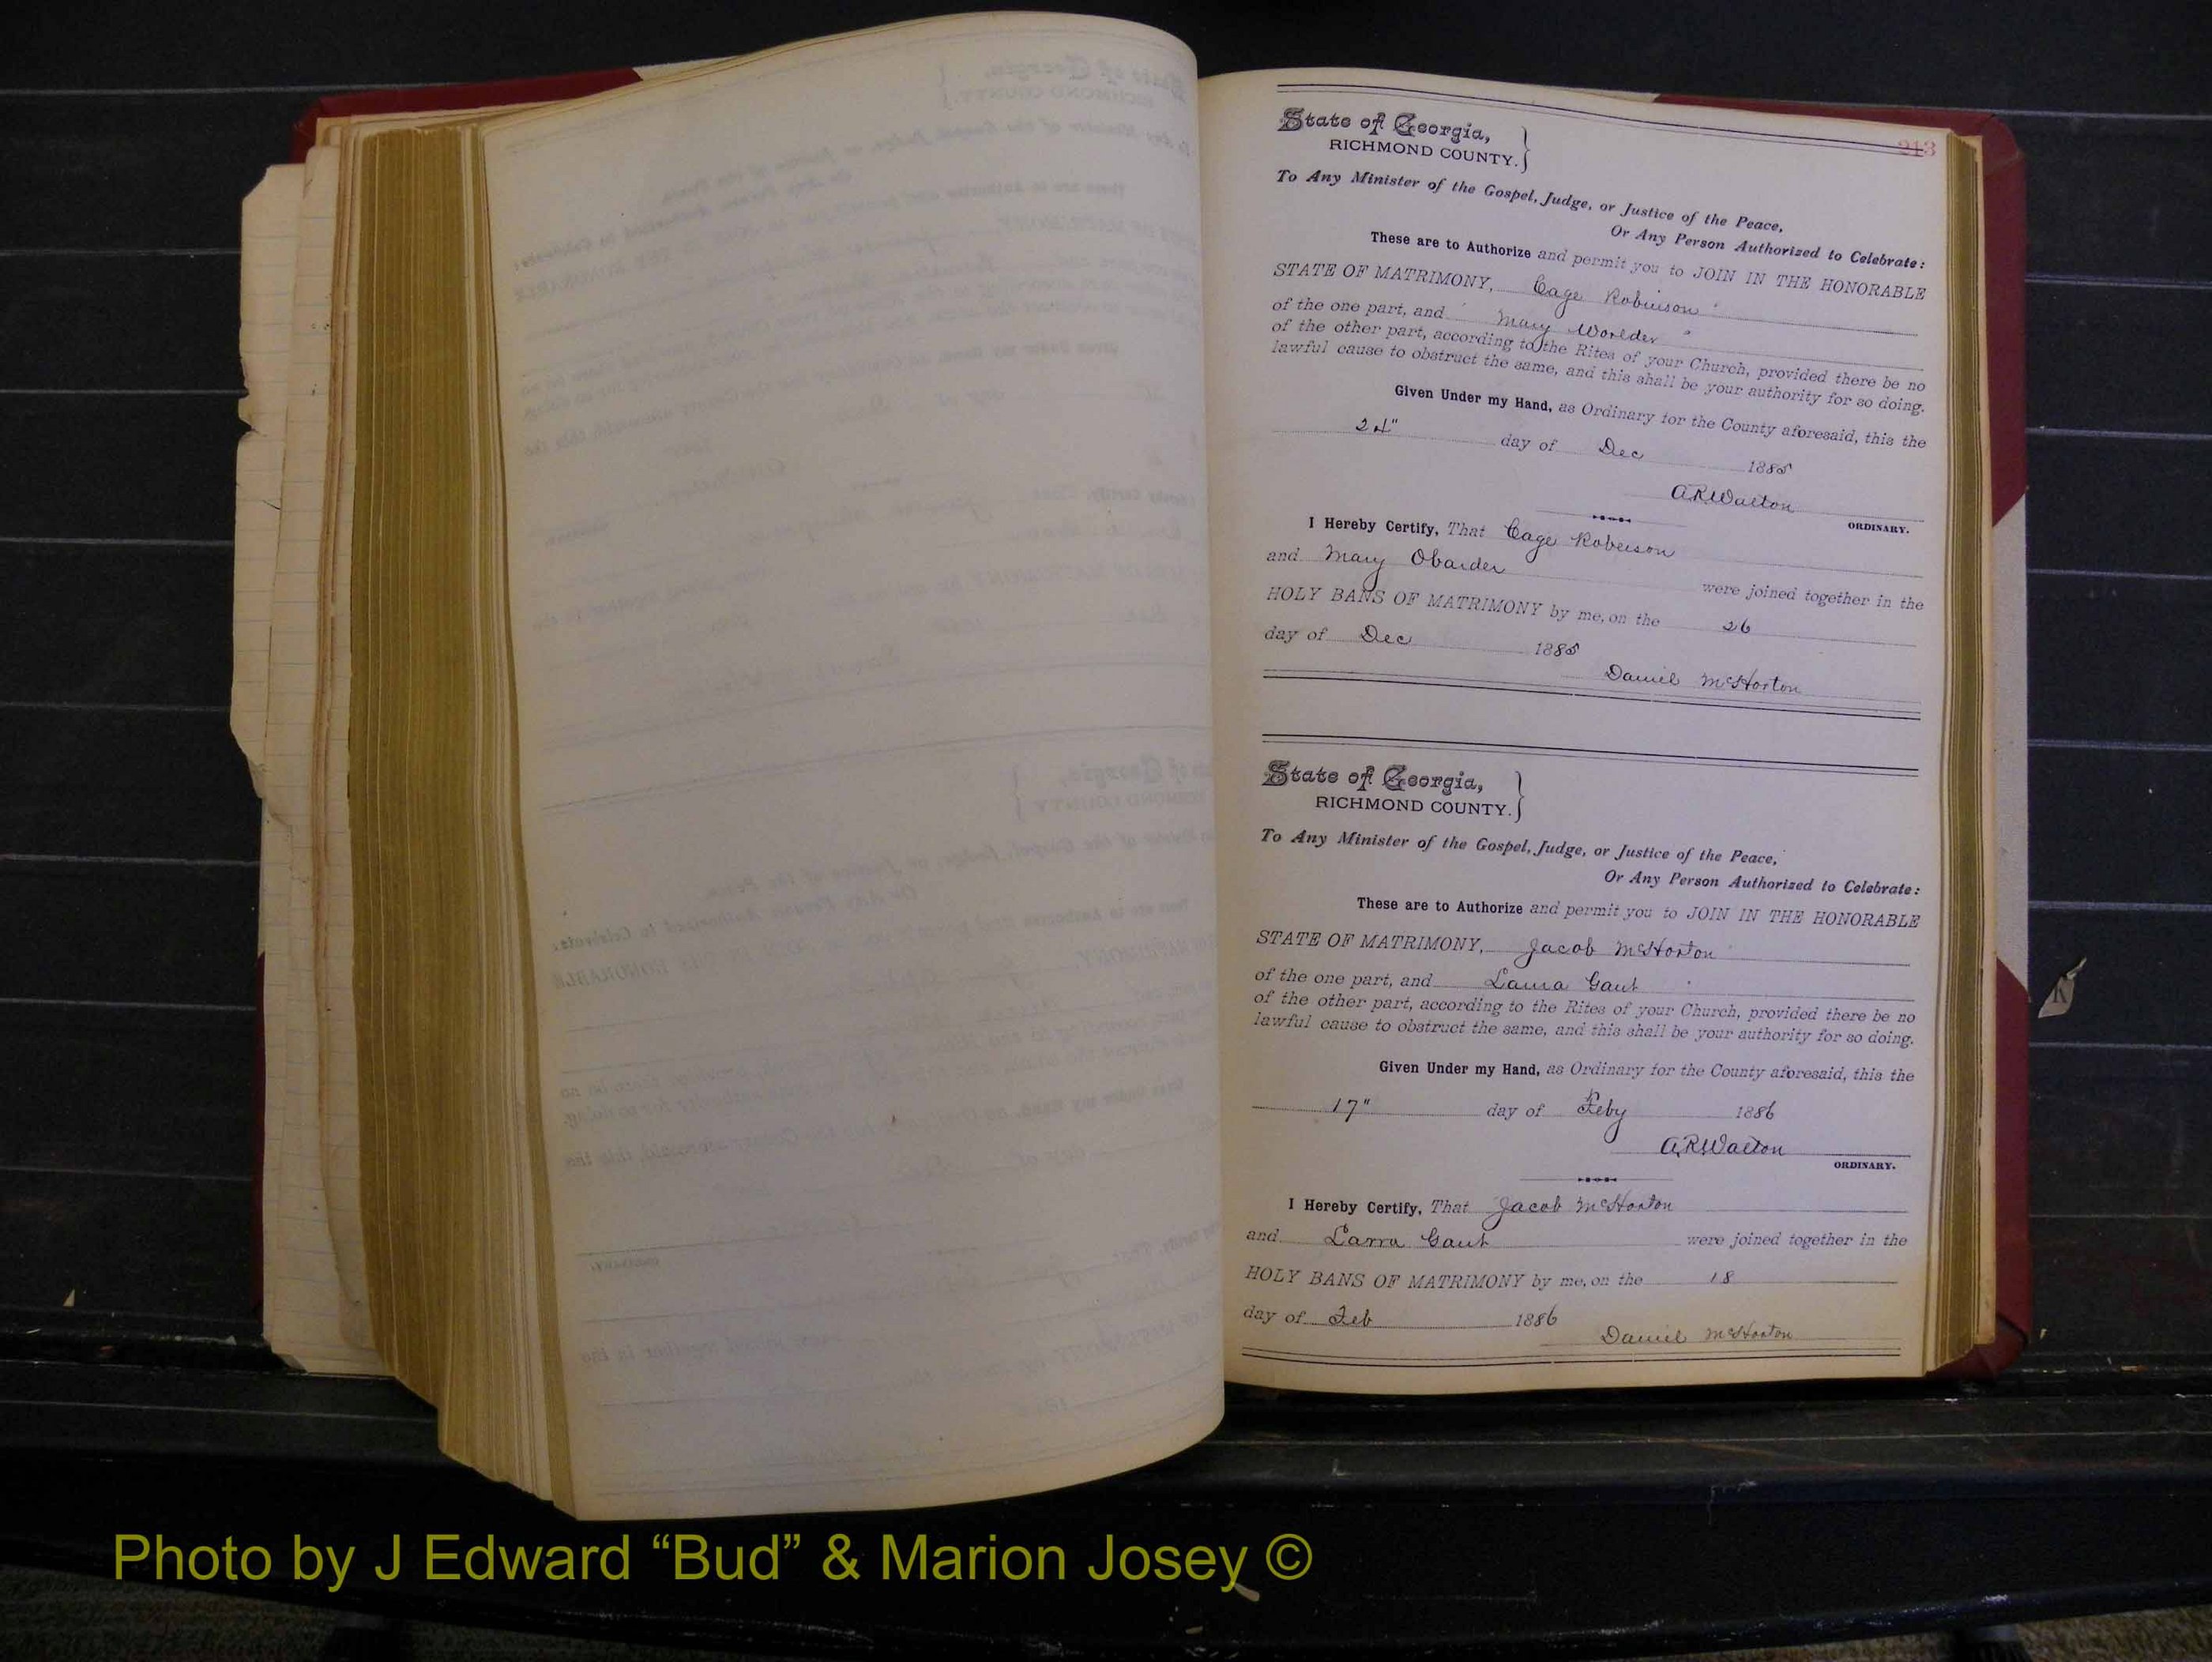 213
State of Georgia,
RICHMOND COUNTY.
To Any Minister of the Gospel, Judge, or Justice of the Peace,
Or Any Person Authorized to Celebrate:
These are to Authorize and permit you to JOIN IN THE HONORABLE
STATE OF MATRIMONY, Cage Robinson
of the one part, and Mary Worlder
of the other part, according to the Rites of your Church, provided there be no
lawful cause to obstruct the same, and this shall be your authority for so doing.
Given Under my Hand, as Ordinary for the County aforesaid, this the
24" day of Dec 1885
A.R. Walton
ORDINARY.
I Hereby Certify, That Cage Roberson
and Mary Obarder were joined together in the
HOLY BANS OF MATRIMONY by me, on the 26
day of Dec 1885
Daniel McHorton
State of Georgia,
RICHMOND COUNTY.
To Any Minister of the Gospel, Judge, or Justice of the Peace,
Or Any Person Authorized to Celebrate:
These are to Authorize and permit you to JOIN IN THE HONORABLE
STATE OF MATRIMONY, Jacob McHorton
of the one part, and Laura Gant
of the other part, according to the Rites of your Church, provided there be no
lawful cause to obstruct the same, and this shall be your authority for so doing.
Given Under my Hand, as Ordinary for the County aforesaid, this the
17" day of Feby 1886
A.R. Walton
ORDINARY.
I Hereby Certify, That Jacob McHorton
and Larra Gant were joined together in the
HOLY BANS OF MATRIMONY by me, on the 18
day of Feb 1886
Daniel McHorton
Photo by J Edward “Bud” & Marion Josey ©